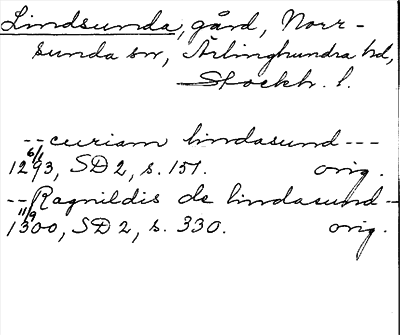 Lindsunda, gård, Norr-
sunda sn, Ärlinghundra hd,
Stockh. l.
--curiam lindasund---
6/1
1293, SD 2, s. 151. orig.
--Ragnildis de lindasund--
11/9
1300, SD 2, s. 330. orig.